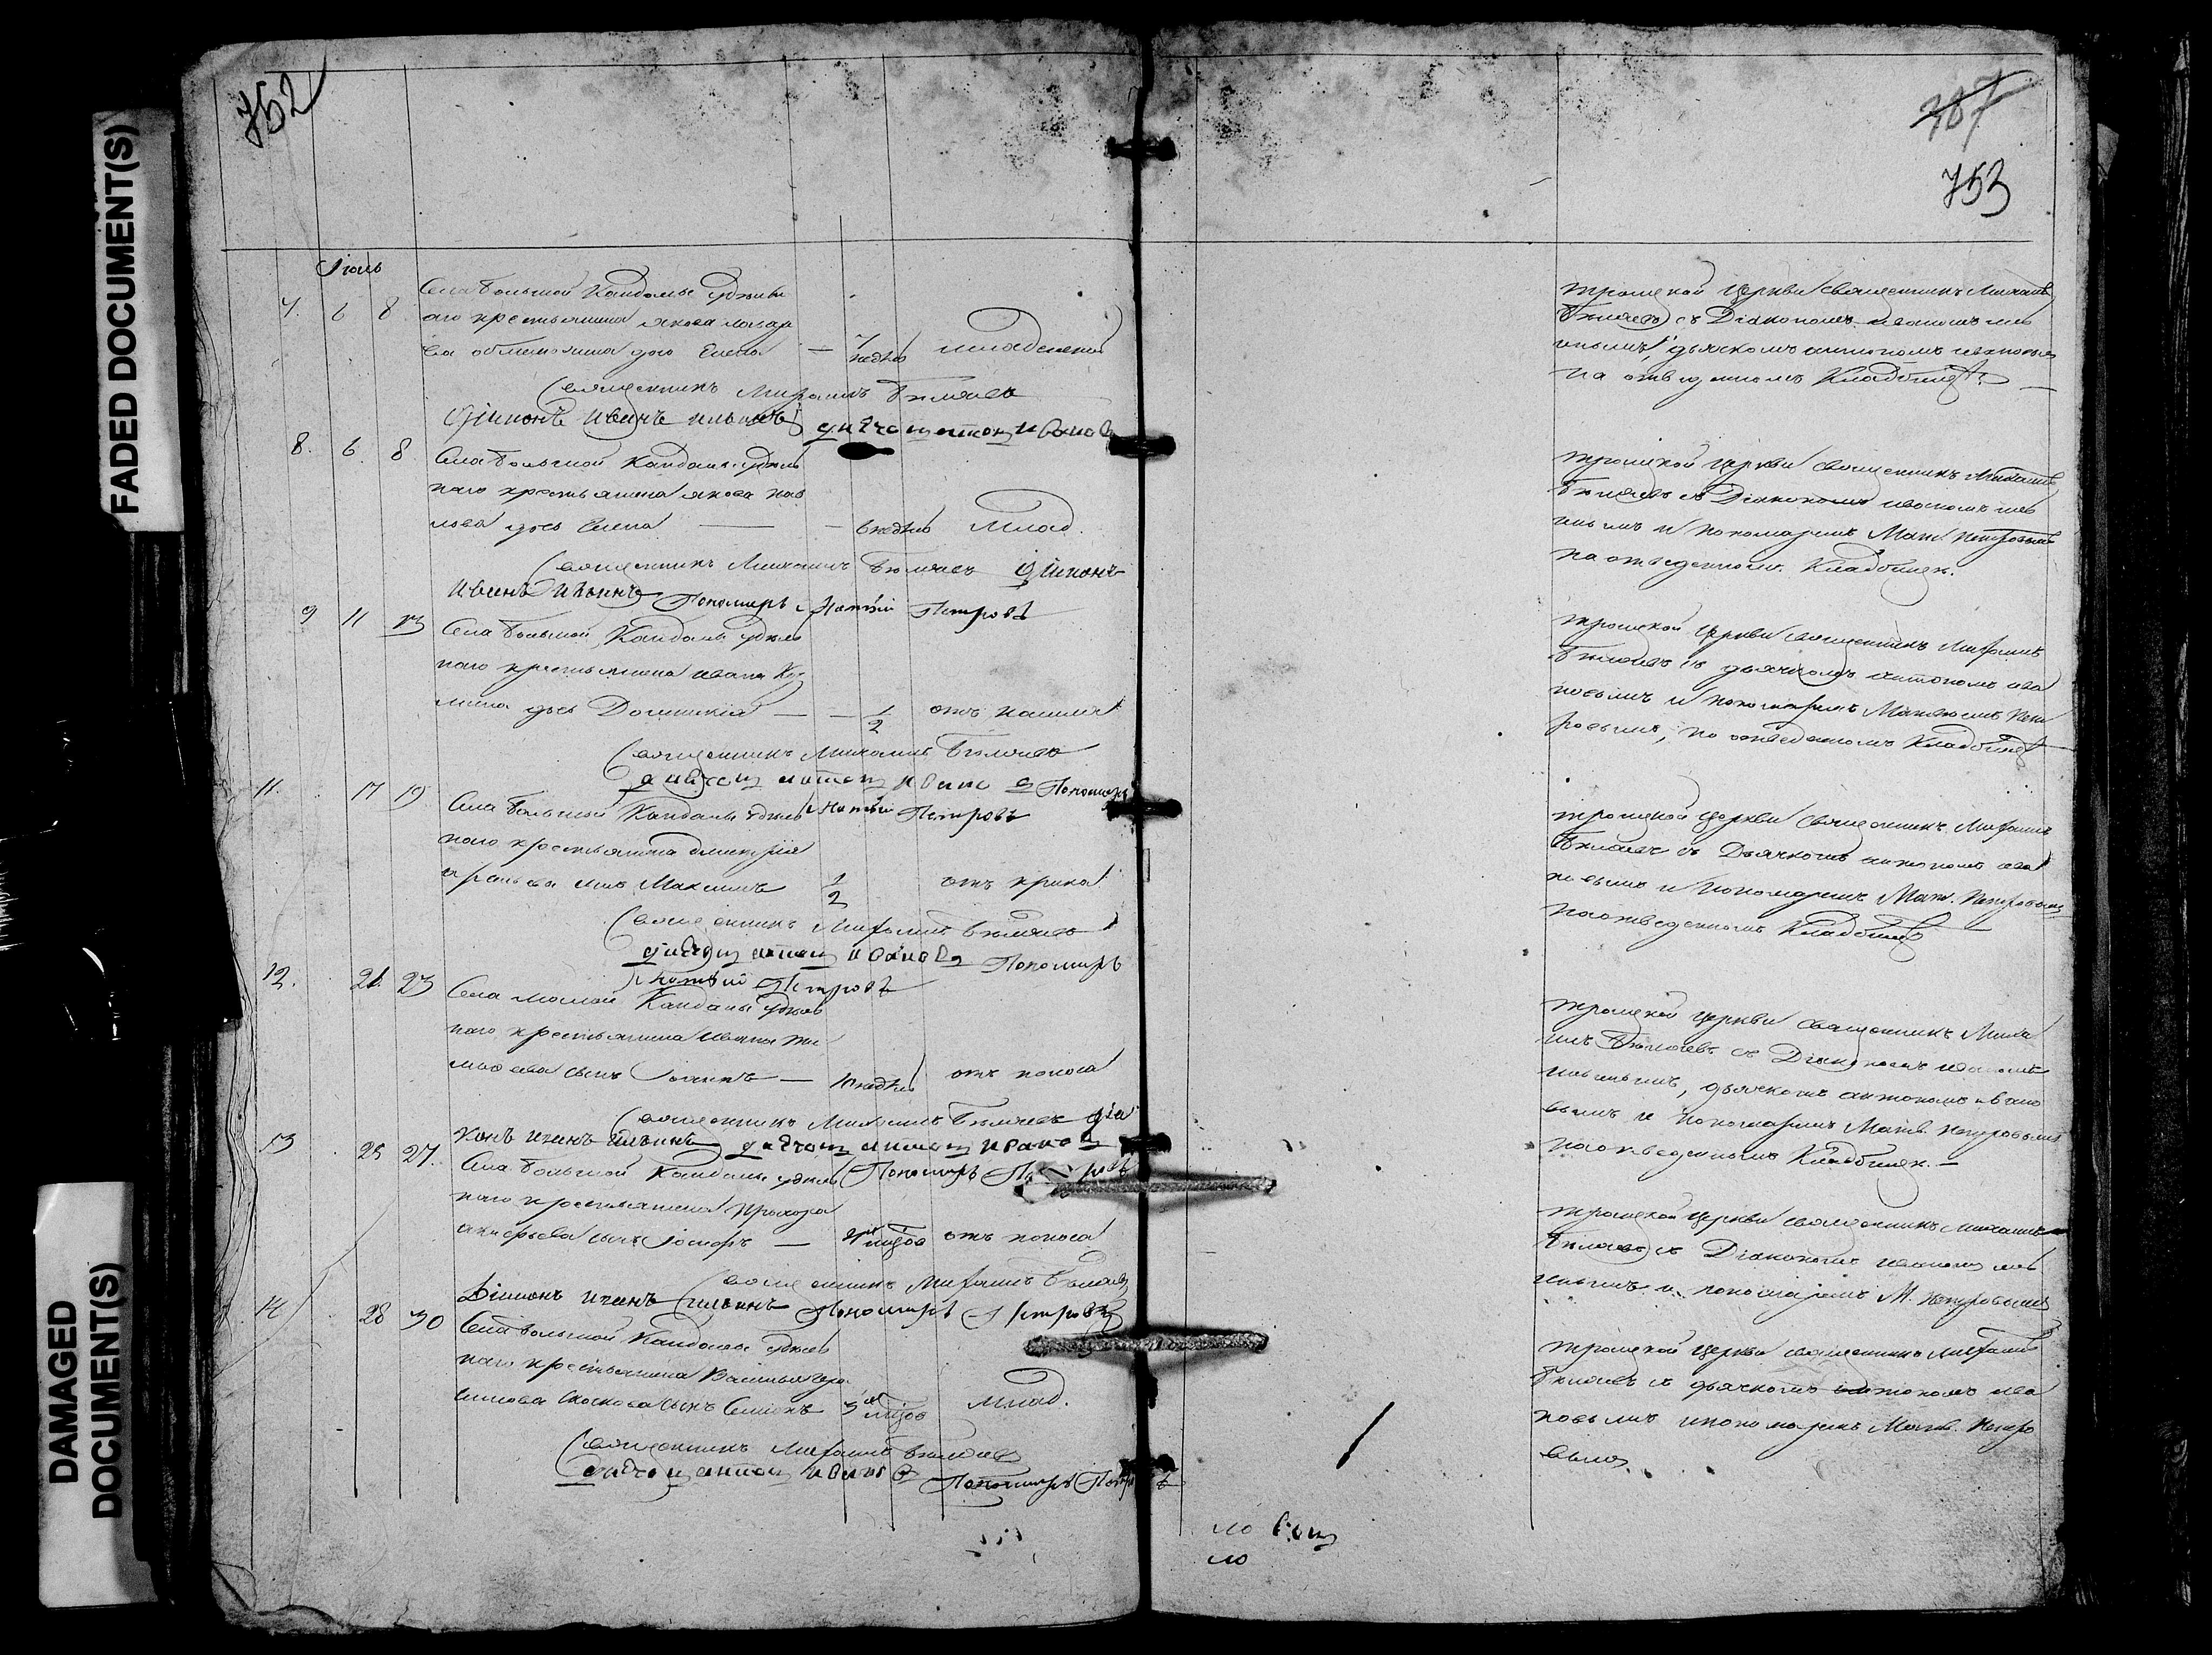 FADED DOCUMENT(S)
DAMAGED
DOCUMENT(S)
752
Іюль
7. 6 8
Села большой Кандалы удѣльн
аго крестьянина якова
дочь Елена — 7 недѣль младенецъ
Священникъ Михаилъ Бѣляевъ
Діяконъ Иванъ Ильинъ дьячокъ антонъ Ивановъ
8. 6. 8 Села большой Кандалы удѣль
наго крестьянина якова пав
лова дочь Елена — 6 недѣль млад.
Священникъ Михаилъ Бѣляевъ Діяконъ
Иванъ Ильинъ Пономарь Матвѣй Петровъ
9 11 13 Села большой Кандалы удѣль
наго крестьянина ивана Куз
мина дочь Домникія — 1/2 отъ кашля
Священникъ Михаилъ Бѣляевъ
дьячокъ антонъ Ивановъ Пономарь
Матвѣй Петровъ
11. 17 19 Села большой Кандалы удѣль
наго крестьянина дмитрія
сынъ Максимъ 1/2 отъ крика
Священникъ Михаилъ Бѣляевъ
дьячокъ антонъ Ивановъ Пономарь
Матвѣй Петровъ
12. 21. 23 Села малой Кандалы удѣль
наго крестьянина Ивана ти
моѳеева сынъ — 10 недѣль отъ поноса
Священникъ Михаилъ Бѣляевъ Діа
конъ Иванъ Ильинъ дьячокъ антонъ Ивановъ
13 25 27. Села большой Кандалы удѣль Пономарь
наго крестьянина Прохора
сынъ Іосифъ — мѣсяцов отъ поноса
Священникъ Михаилъ Бѣляевъ
Діяконъ Иванъ Ильинъ Пономарь Петровъ
14 28 30 Села большой Кандалы удѣль
наго крестьянина Василья гера
симова сынъ Симіонъ 3 мѣсяцов млад.
Священникъ Михаилъ Бѣляевъ
дьячокъ антонъ Ивановъ Пономарь Петровъ
307
753
троицкой Церкви священникъ Михаилъ
Бѣляевъ съ Діакономъ иваномъ иль
инымъ, дьячкомъ антономъ ивановым
на отведенномъ Кладбищѣ. —
троицкой Церкви священникъ Михаилъ
Бѣляевъ съ Діакономъ иваномъ иль
инымъ и пономаремъ Матв. Петровымъ
на отведенном. Кладбищѣ.
троицкой Церкви священникъ Михаилъ
Бѣляевъ съ дьячкомъ антономъ ива
новымъ и пономаремъ Матвѣемъ Пет
ровымъ, на отведенномъ Кладбищѣ
троицкой Церкви священникъ Михаилъ
Бѣляевъ съ Дьячкомъ антономъ ива
новымъ и пономаремъ Матв. Петровымъ
на отведенномъ Кладбищѣ —
троицкой Церкви священникъ Миха
илъ Бѣляевъ съ Діакономъ иваномъ
ильинымъ, дьячкомъ антономъ ивано
вымъ и пономаремъ Матв. Петровымъ
на отведенномъ Кладбищѣ. —
троицкой Церкви священникъ Михаилъ
Бѣляевъ съ Діакономъ иваномъ иль
инымъ и пономаремъ М. Петровымъ
троицкой Церкви священникъ Михаилъ
Бѣляевъ съ дьячкомъ антономъ ива
новымъ и пономаремъ Матв. Петро
вымъ.